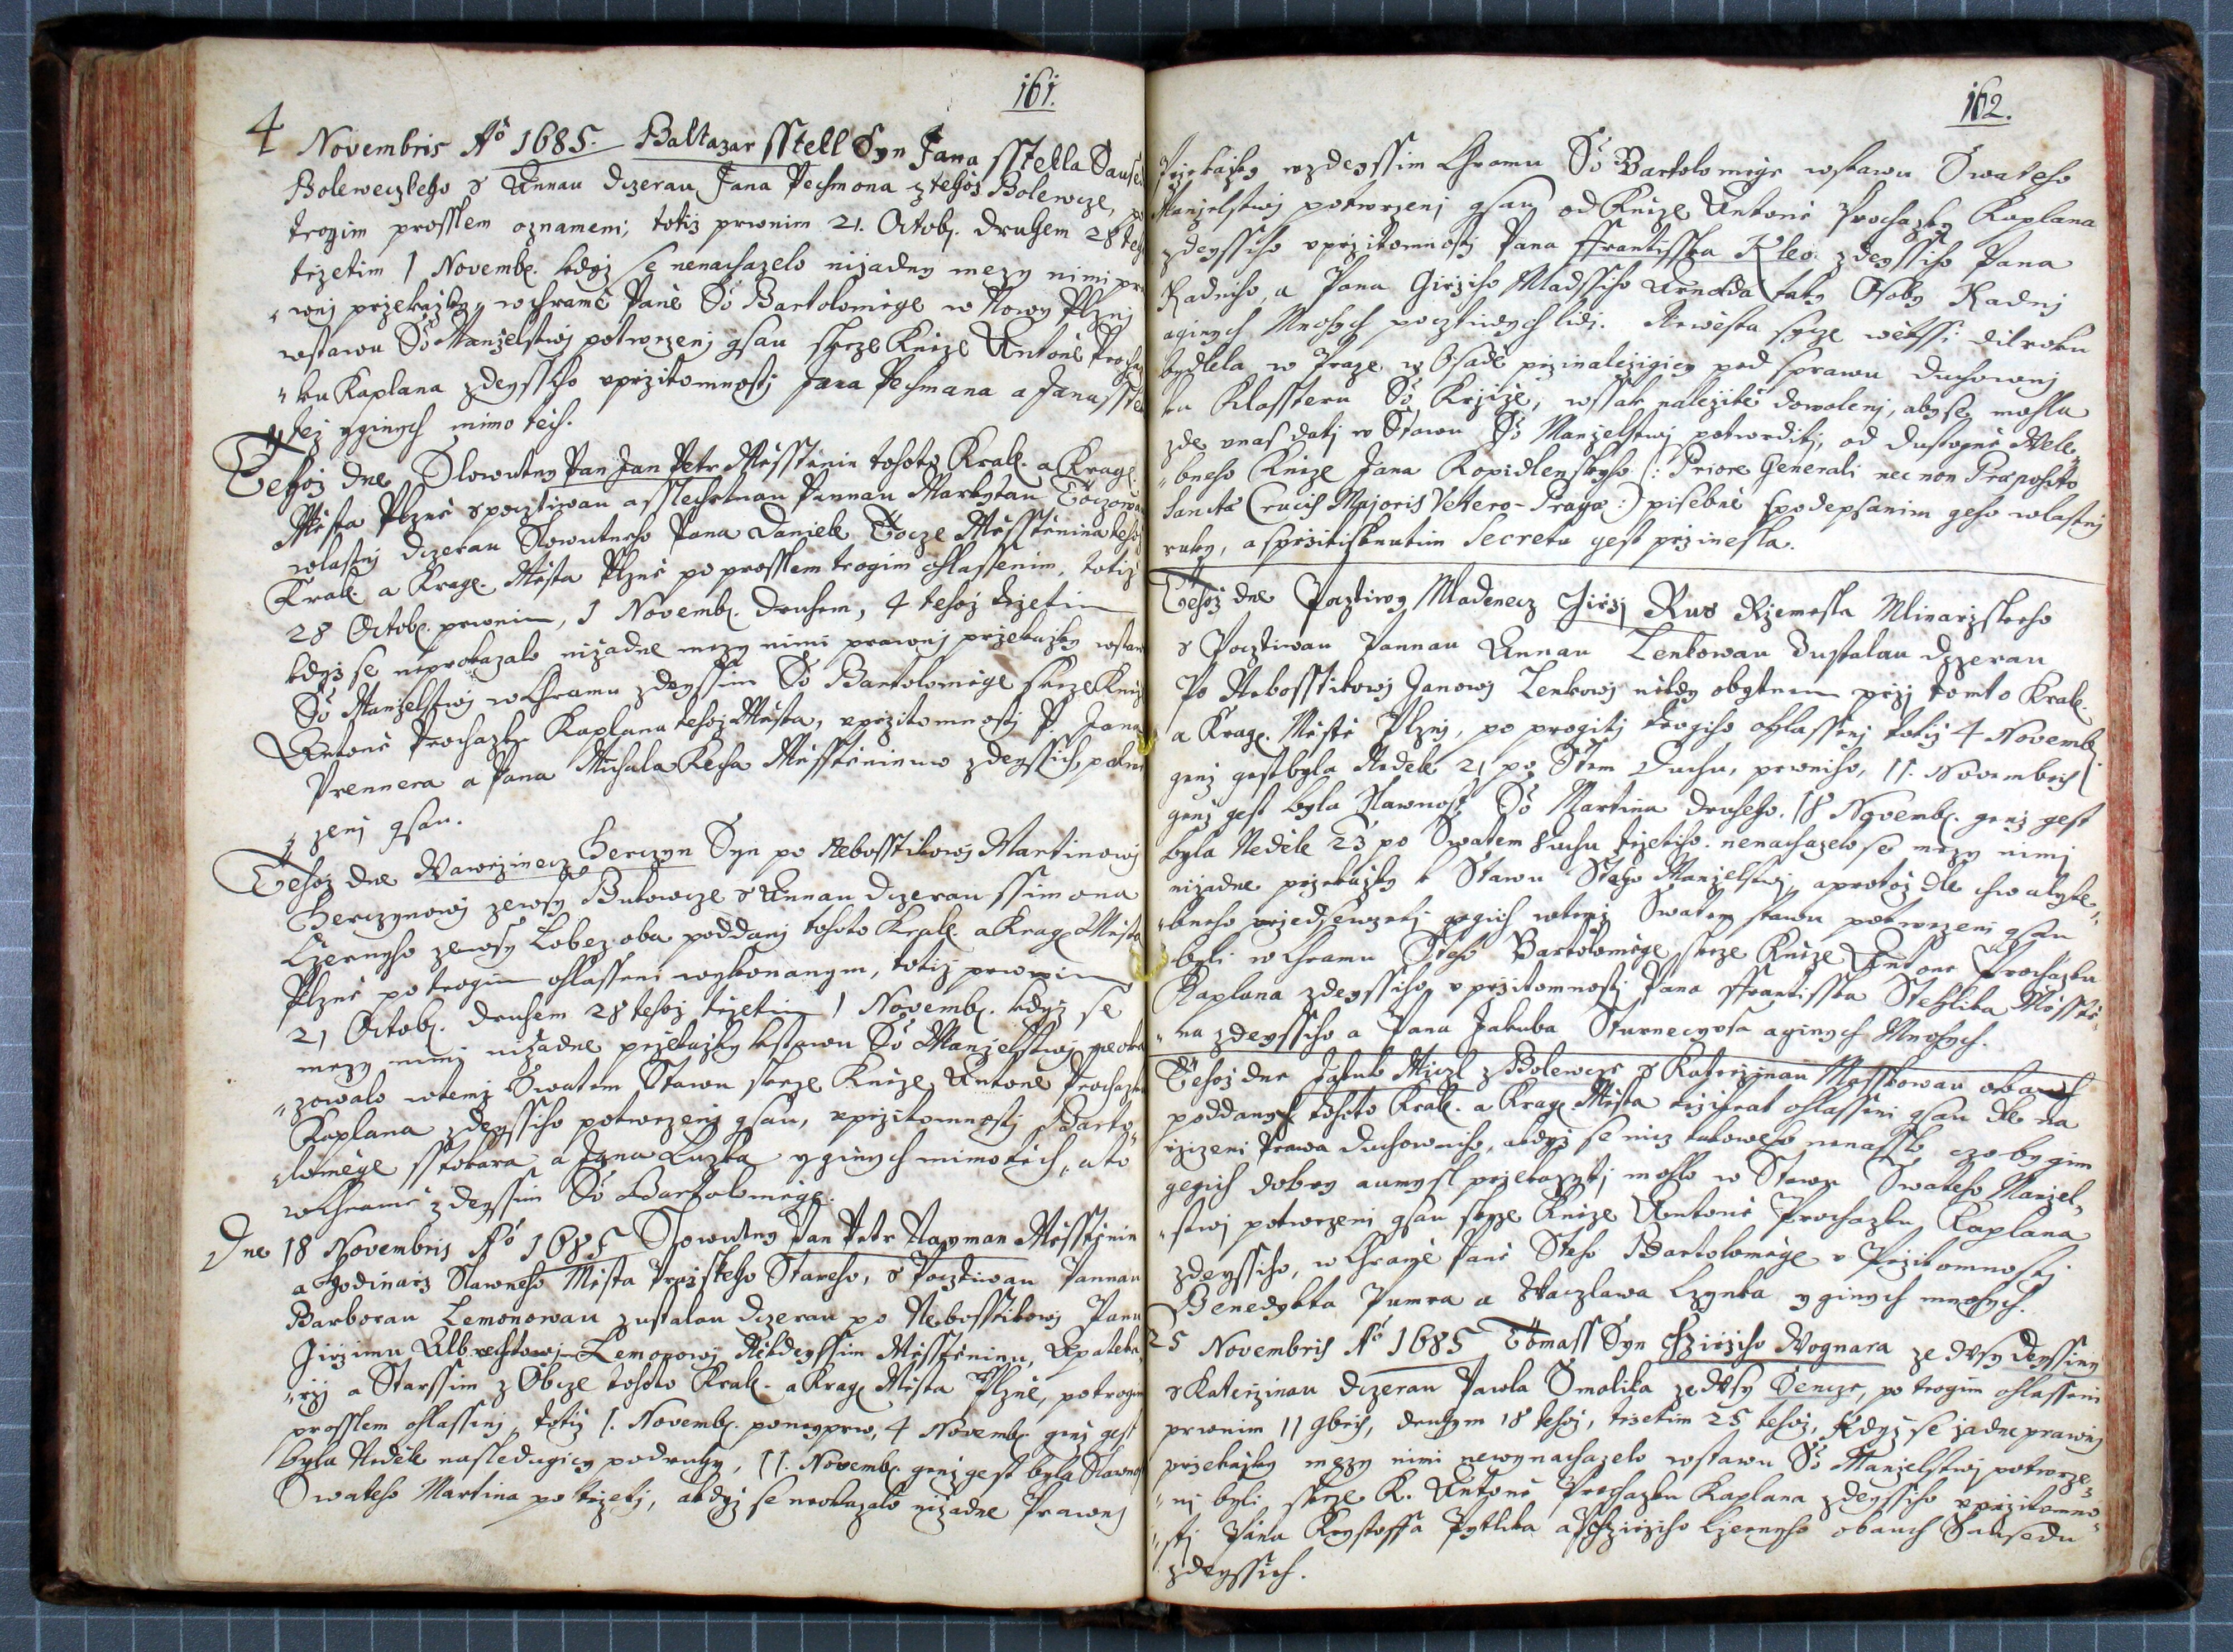 161.
4 Novembris Aõ 1685. Baltazar sstell Syn Jana sstella Sause
Boleweczkeho s Annau dczerau Jana Pechmona z tehoz Bolewcze, po
trogim prosslem oznameni; totiz prwnim 21. Octob. druhem 28 teh
trzetim 1 Novemb. kdyz se nenachazelo nizadny mezy nimi pra
wnj przekazky, w chrame Paně So Bartolomege w Nowy Plznj
wstawu So Manzelstwj potwrzenj gsau skrze Knize Antoně Procha
ku Kaplana zdegssiho uprzitomnostj Jana Pechmana a Jana sste
tez y ginych mimo tech.
Tehoz dne Slowutny Pan Jan Petr Měsstěnin tohoto Kral. a Krag.
Města Plzně s pocztiwau a sslechetnau Pannau Markytau
wlastnj dczerau Slowutneho Pana Daniele Měsstěnina tehoz
Kral. a Krag. Města Plzně po prosslem trogim ohlassenim, totiz
28 Octob. prwnim, 1 Novemb. druhem, 4 tehoz trzetim
kdyz se neprokazalo nizadne mezy nimi prawnj przekazky wstaw
So Manzelstwj w Chramu zdegssim So Bartolomege skrze Kniz
Antoně Prochazku Kaplana tehoz Města, uprzitomnostj P. Jana
Prennera a Pana Michala Kecha Měsstěninuw zdegssich, potwr
zenj gsau.
Tehoz dne Wawrzinecz Herczyn Syn po Nebosstikowj Martinowj
Herczynowj zewsy Bukowcze s Annau dczerau ssimona
Czerneho zewsy Lobez oba poddanj tohoto Kral. a Krag. Města
Plzně po trogim ohlassenj wykonanym, totiz prwnim
21 Octob. druhem 28 tehoz trzetim 1 Novemb. kdyz se
mezy nimj nizadne przekazky kstawu So Manzelstwj neoka
zowalo wtemz Swatem Stawu skrze Knize Antoně Prochazku
Kaplana zdegssiho potwrzenj gsau, uprzitomnostj Barto
lomege sstokara a Jana Luzka y ginych mimo tech, a to
w Chramě zdegssim So Bartolomege.
Dne 18 Novembris Aõ 1685 Slowutny Pan Petr Nayman Měsstěnin
a Hodinarz Slawneho Města Prazskeho Stareho, s Pocztiwau Pannau
Barborau Lemonowau zustalau dczerau po Nebosstikowj Panu
Jirzimu Albrechtowi Lemonowj Někdegssim Měsstěninu, Apateka
rzj a Starssim z Obcze tohoto Kral. a Krag. Města Plzně, po trogim
prosslem ohlassenj, totiz 1. Novemb. ponegprw, 4 Novemb. genz gest
byla Neděle nasledugicy podruhy, 11. Novemb. genz gest byla Slawnost
Swateho Martina po trzetj, a kdyz se neokazalo nizadne Prawnj
162.
Przekazky wzdegssim Chramu So Bartolomege wstawu Swateho
Manzelstwj potwrzenj gsau od Knize Antoně Prochazky Kaplana
zdegssiho uprzitomnostj Pana Frantisska Kleo zdegssiho Pana
Radniho, a Pana Girziho Mladssiho Arnolda taky Osoby Radnj
a ginych Mnohych pocztiwych lidj. Newěsta sycze wětssi dil roku
bydlela w Praze w Osadě przinalezigicy pod sprawu duchownj
ku Klassteru So Krzize, wssak nalezitě dowolenj, aby se mohla
zde unas datj w Stawu So Manzelstwj potwrditj, od dustogně Wele
bneho Knize Jana Kopidlenskyho (: Priore Generali nec non Præposito
Sanctæ Crucis Majoris Vetero-Pragæ :) pisebně spodepsanim geho wlastnj
ruky, a sprzitisknutim Secretu gest przinesla.
Tehoz dne Pocztiwy Mladenecz Girzj Rus Rzemesla Mlinarzskeho
s Pocztiwau Pannau Annau Lenkowau Zustalau dczerau
Po Nebosstikowj Janowj Lenkowj někdy obytnem przj tomto Kral.
a Krag. Městě Plznj, po progitj trogiho ohlassenj totiz 4 Novemb.
genz gest byla Neděle 21 po Stem Duchu, prwniho, 11. Novembris
genz gest byla Slawnost So Martina druheho. 18 Novemb. genz gest
byla Neděle 23 po Swatem Duchu trzetiho. nenachazelo se mezy nimj
nizadne przekazky k Stawu Steho Manzelstwj, a protoz dle chwalyte
bneho przedsewzetj gegich wtemz Swatem stawu potwrzeni gsau
byli w Chramu Steho Bartolomege skrze Knize Antone Prochazku
Kaplana zdegssiho, uprzitomnostj Pana Frantisska Stehlika Měsstě
na zdegssiho a Pana Jakuba Sturnecyusa a ginych Mnohych.
Tehoz dne Jakub Miczl z Bolewcze s Katerzinau Masskowau obauch
poddanych tohoto Kral. a Krag. Města trzikrat ohlasseni gsau dle na
rzizeni Prawa Duchowniho, a kdyz se nicz takoweho nenasslo, czo by gim
gegich dobry aumysl przekazytj mohlo w Stawu Swateho Manzel
stwj potwrzeni gsau skrze Knize Antoně Prochazku Kaplana
zdegssiho, w Chramě Paně Steho Bartolomege u Przitomnostj
Benedykta Pumra a Waczlawa Czynka y ginych mnohych.
25 Novembris Aõ 1685 Tomass Syn Girziho Wognara ze Wsy Degssiny
s Katerzinau dczerau Pawla Smolika ze Wsy Sencze, po trogim ohlasseni
prwnim 11 9bris, druhym 18 tehoz, trzetim 25 tehoz, kdyz se zadne prawnj
przekazky mezy nimi newynachazelo wstawu So Manzelstwj potwrze
ni byli skrze K. Antoně Prochazku Kaplana zdegssiho uprzitomno
stj Pana Krystoffa Pytlika a Girziho Czerneho obauch Sausedu
zdegssich.